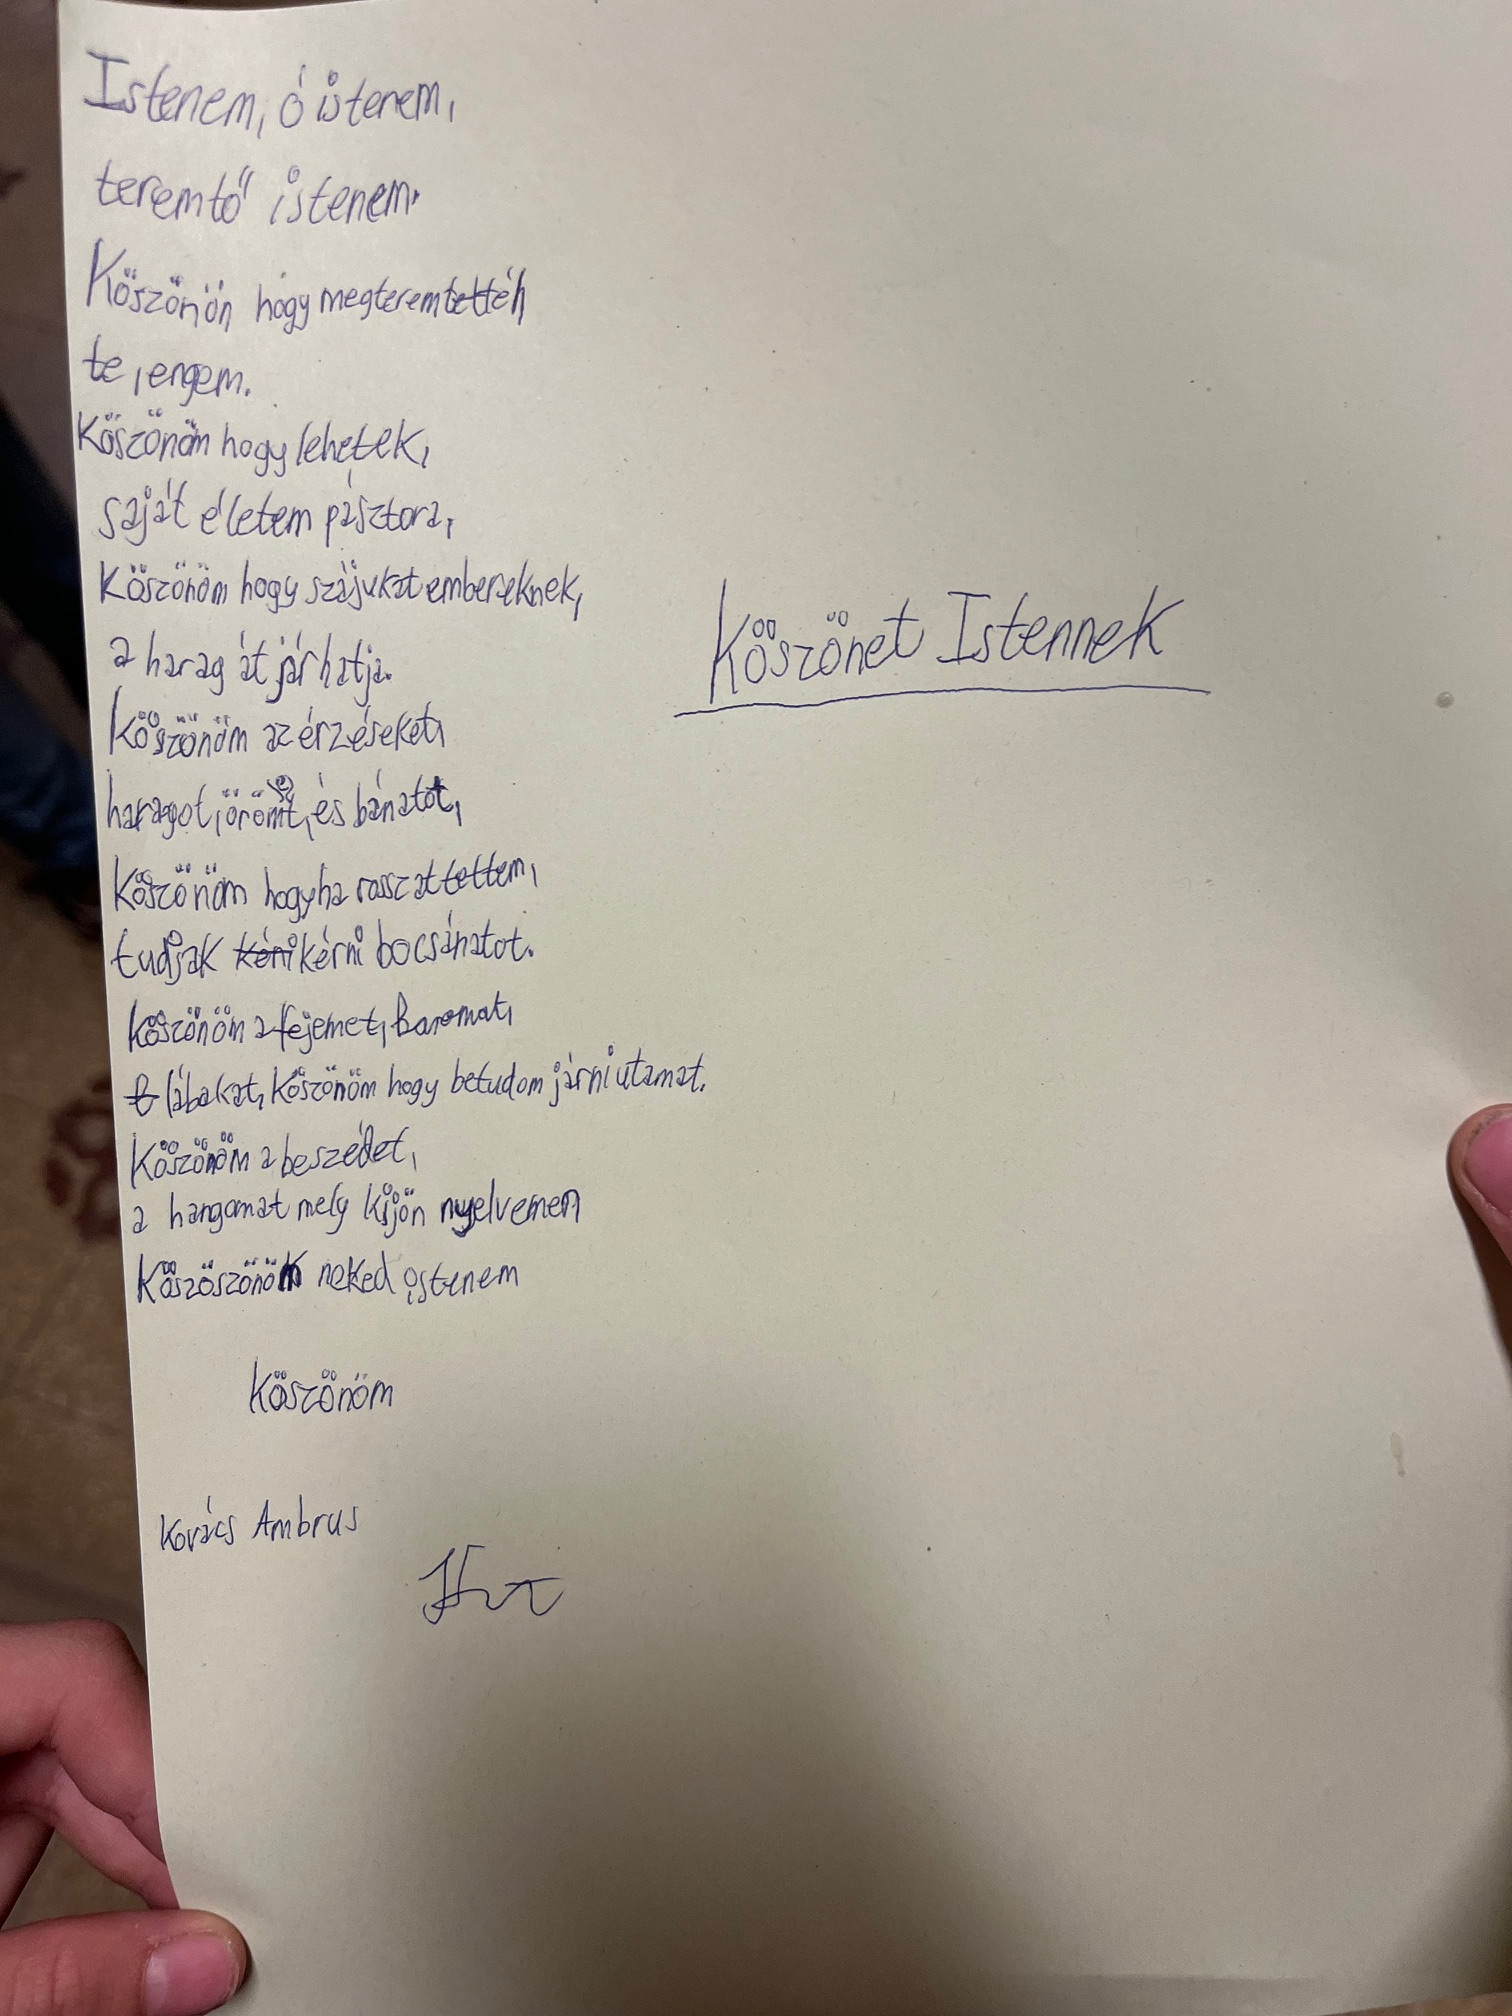 Istenem, ó istenem,
teremtő istenem.
Köszönön hogy megteremtettéh
te, engem.
Köszönöm hogy lehetek,
saját életem pásztora,
Köszönöm hogy szájukat embereknek,
a harag át járhatja.
Köszönöm az érzéseket,
haragot, örömet, és bánatot,
Köszönöm hogyha rosszat tettem,
tudjak kéni kérni bocsánatot.
Köszönöm a fejemet, karomat,
lábakat, Köszönöm hogy betudom járni utamat.
Köszönöm a beszédet,
a hangomat mely kijön nyelvemen
Köszöszönöm neked istenem
Köszönöm
Kovács Ambrus
Köszönet Istennek